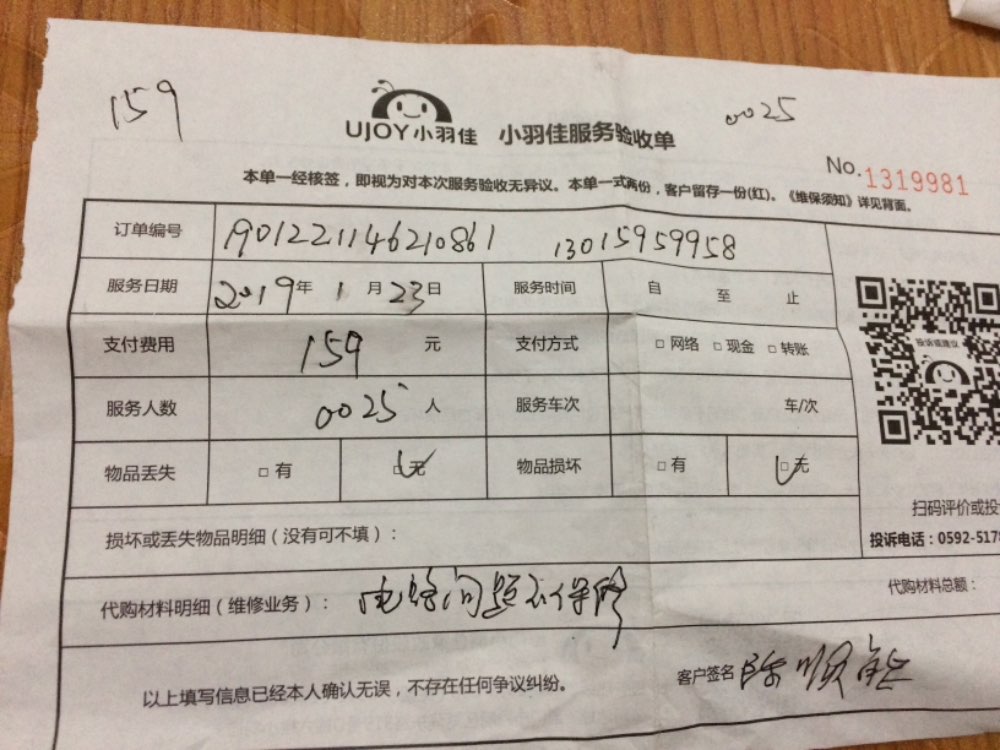 159
0025
UJOY小羽佳 小羽佳服务验收单
No.1319981
本单一经核签，即视为对本次服务验收无异议。本单一式两份，客户留存一份(红)。《维保须知》详见背面。
订单编号 1901221146210861 13015959958
服务日期 2019年 1月 23日 服务时间 自 至 止
支付费用 159 元 支付方式 □ 网络 □ 现金 □ 转账
服务人数 0025 人 服务车次 车/次
物品丢失 □ 有 □无 物品损坏 □ 有 □无
投诉或建议
扫码评价或投
投诉电话：0592-517
损坏或丢失物品明细（没有可不填）：
代购材料明细（维修业务）： 电路问题不保修
代购材料总额：
以上填写信息已经本人确认无误，不存在任何争议纠纷。
客户签名 陈顺